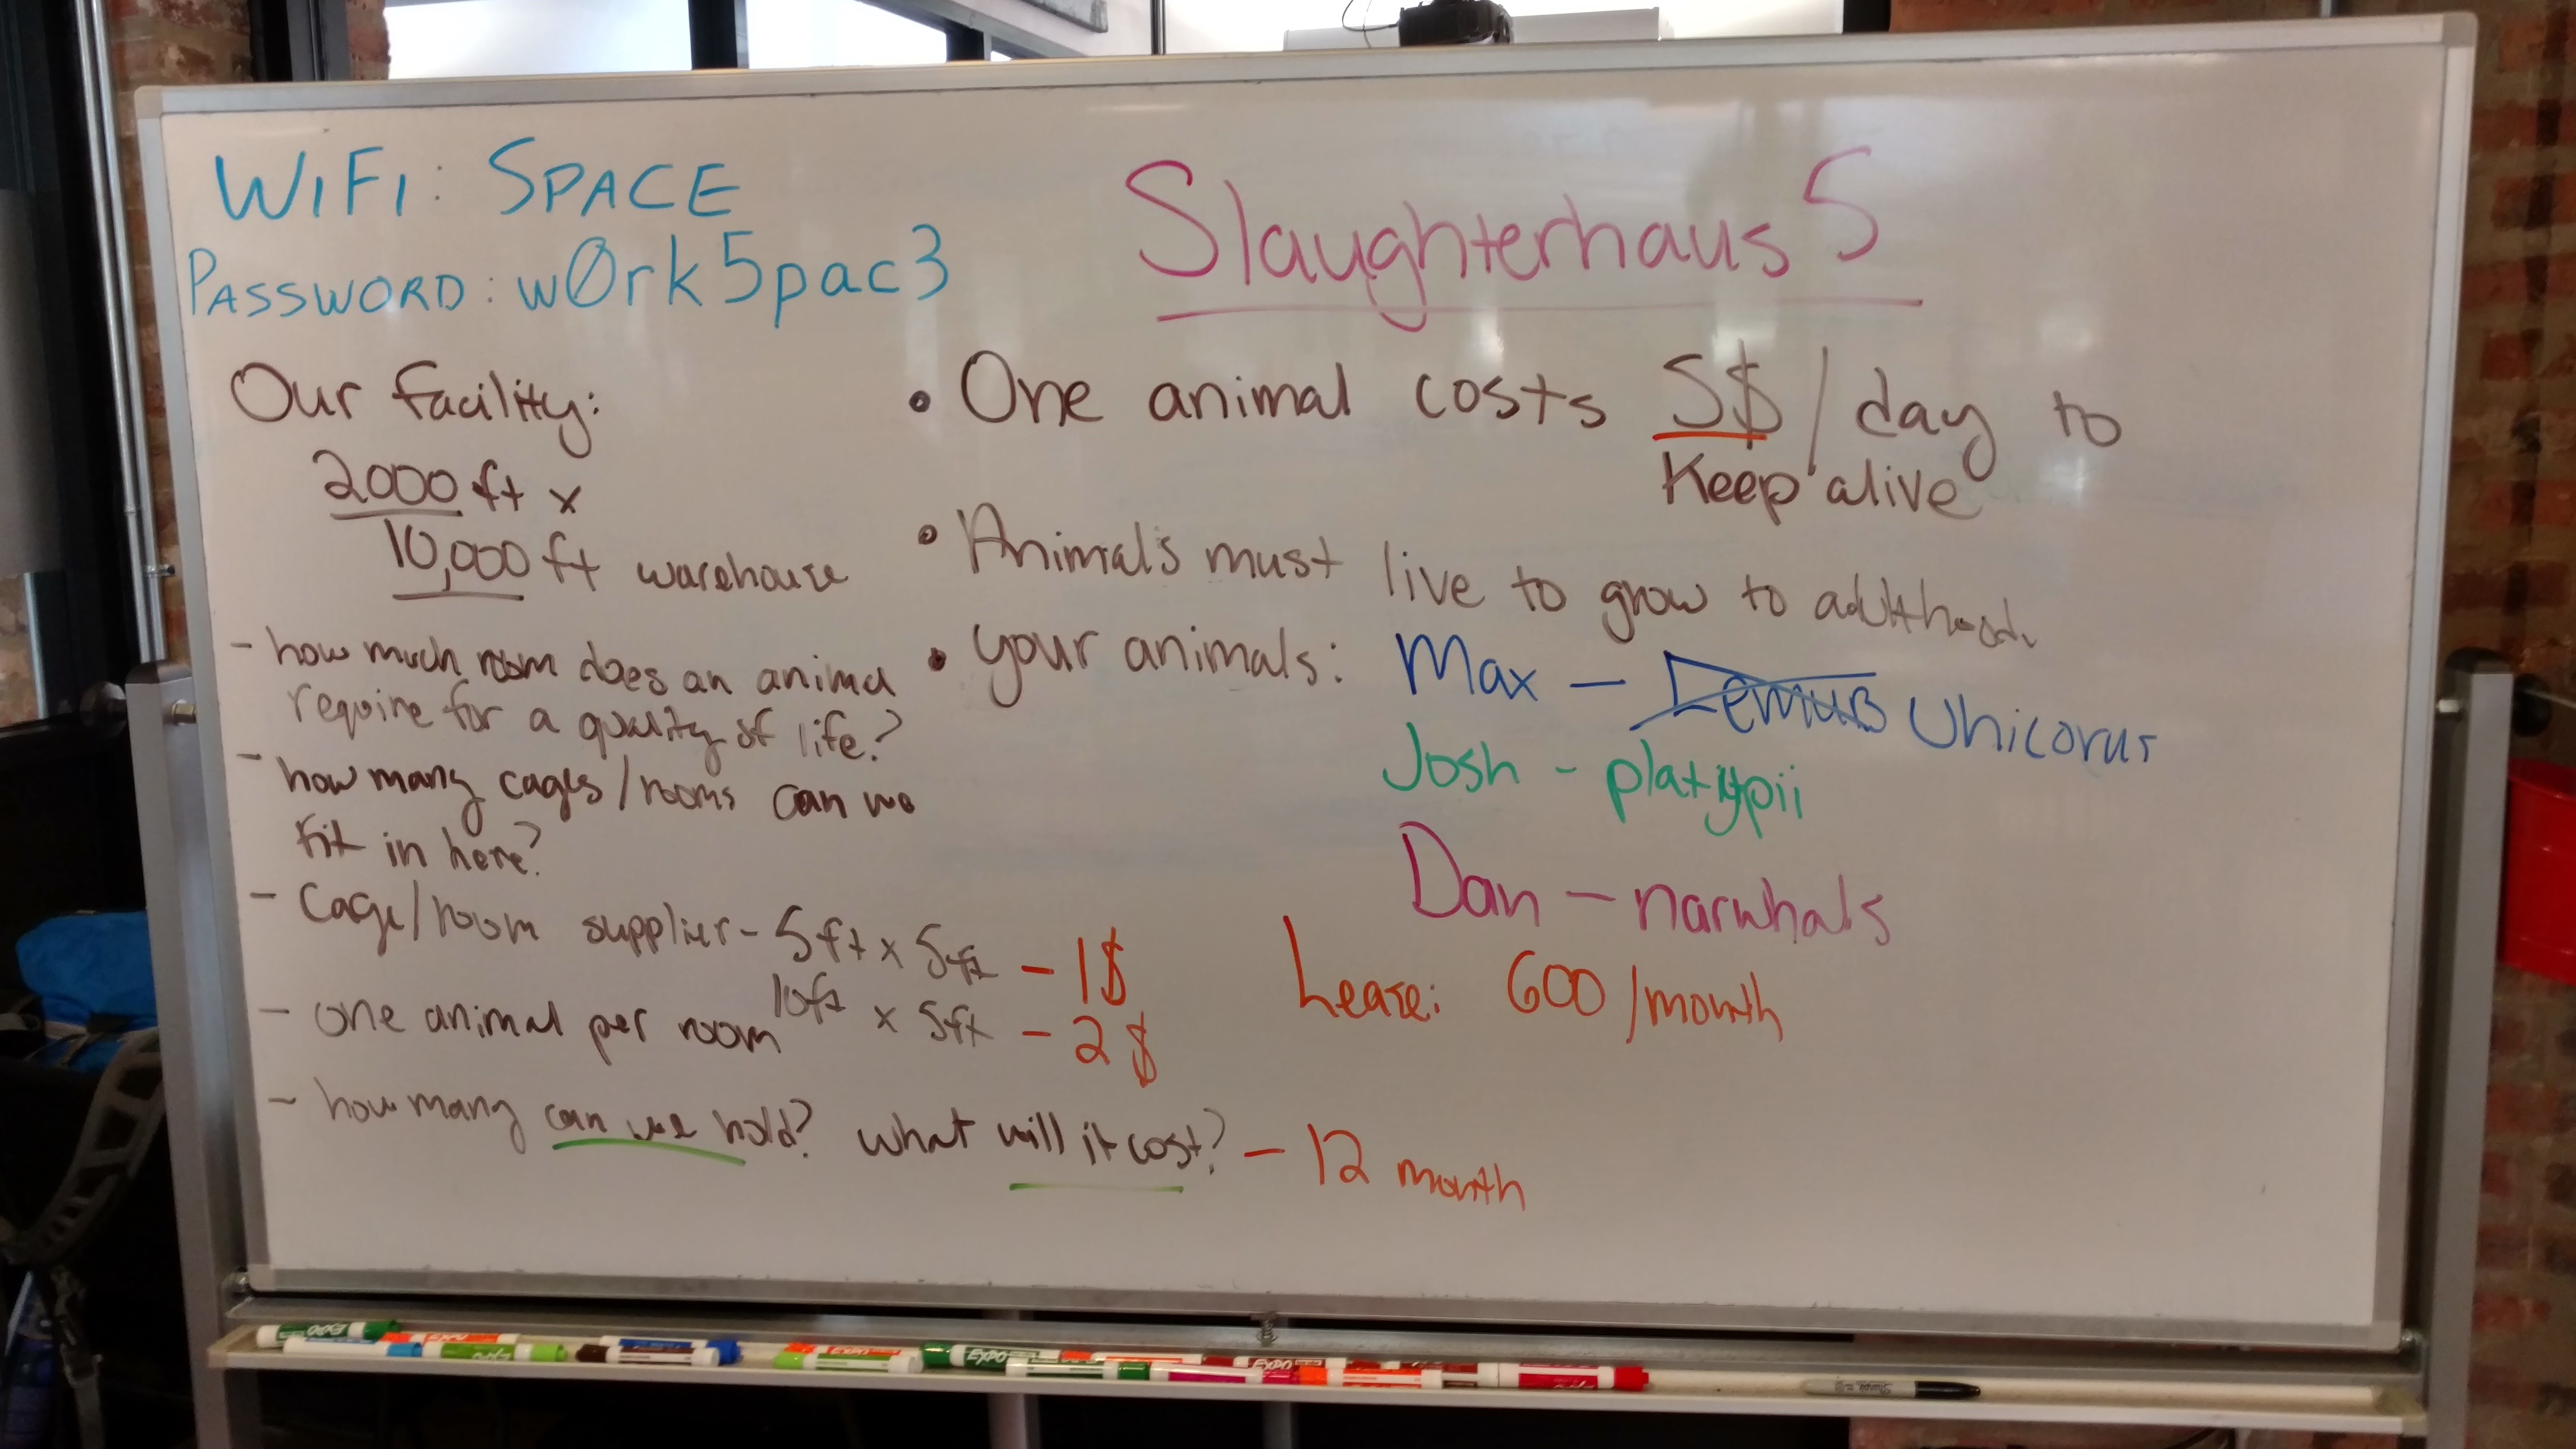 WIFI: SPACE
PASSWORD: w0rk5pac3
Slaughterhaus 5
Our facility:
2000 ft x
10,000 ft warehouse
- how much room does an animal
require for a quality of life?
- how many cages/rooms can we
fit in here?
- Cage/room supplier - 5ft x 5ft - 1$
10ft x 5ft - 2$
- one animal per room
- how many can we hold? what will it cost? - 12 month
• One animal costs 5$/day to
Keep alive
• Animals must live to grow to adulthood.
• your animals: Max - Lemurs Unicorns
Josh - platypii
Dan - narwhals
Lease: 600/month
EXPO
EXPO
EXPO
EXPO
EXPO